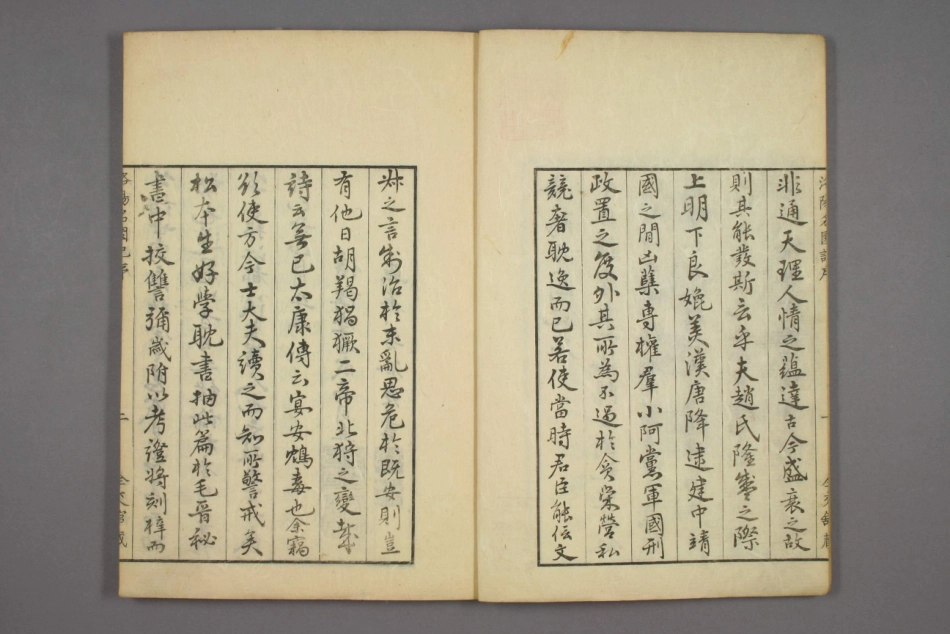 非通天理人情之蘊達古今盛衰之故
則其能發斯云乎夫趙氏隆赛之際
上明下良媲美漢唐降逮建中靖
國之間凶孽專權羣小阿黨軍國刑
政置之度外其所為不過於貪榮營私
競奢耽逸而已若使當時君臣能信文
叔之言制治於未亂思危於既安則豈
有他日胡羯猖獗二帝北狩之變哉
詩云無已太康傳云宴安鴆毒也余竊
欲使方今士大夫讀之而知所警戒矣
松本生好学耽書抽此篇於毛晉秘
書中挍讐彌歲附以考證將刻梓而
洛陽名園記序
二